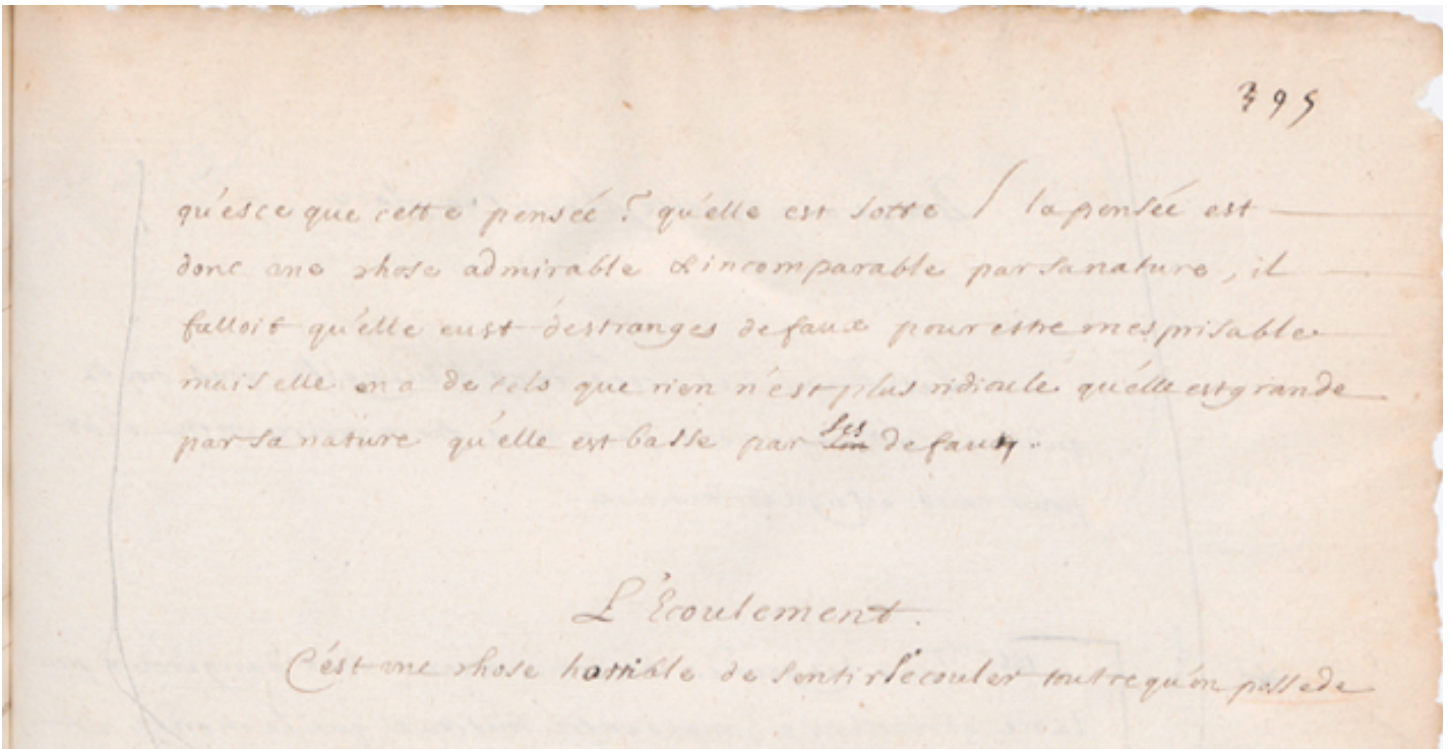 395
qu'esce que cette pensée ? qu'elle est sotte / la pensée est
donc une chose admirable & incomparable par sa nature, il
falloit qu'elle eust d'estranges defaux pour estre mesprisable
mais elle en a de tels que rien n'est plus ridicule qu'elle est grande
par sa nature qu'elle est basse par ses defaux.
L'Ecoulement.
C'est une chose horrible de sentir s'ecouler tout ce qu'on possede